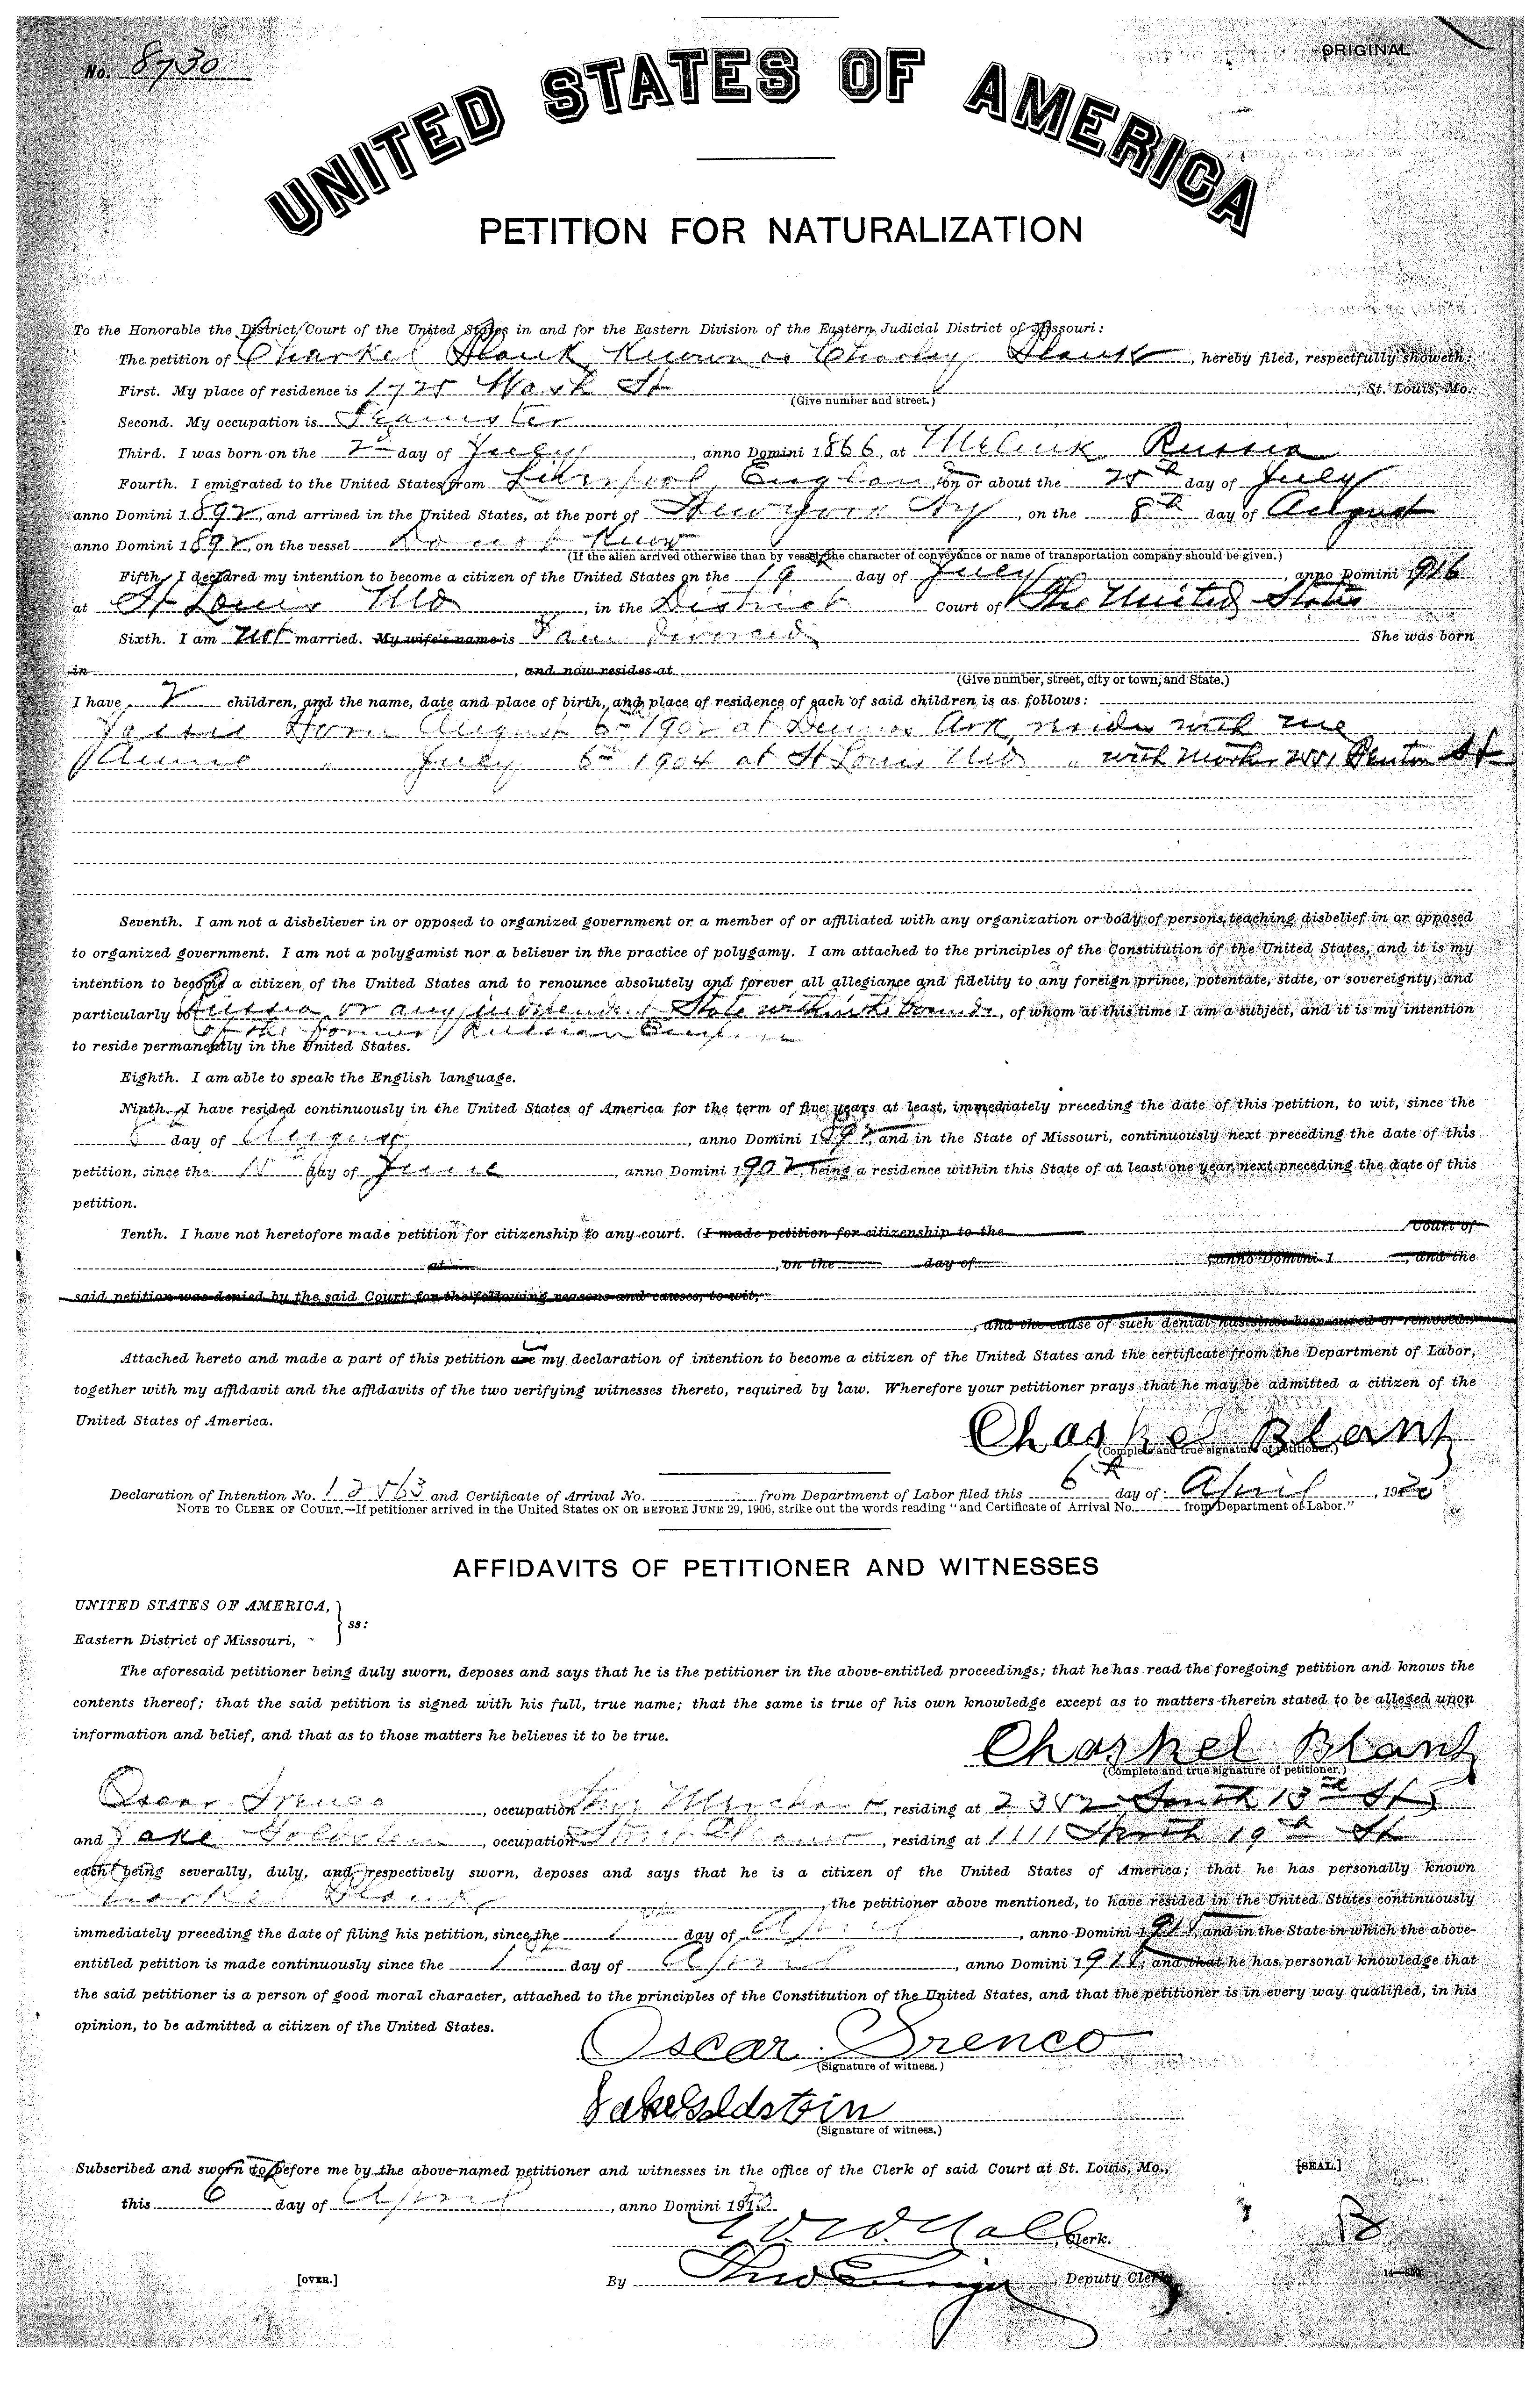 No. 8730
ORIGINAL
UNITED STATES OF AMERICA
PETITION FOR NATURALIZATION
To the Honorable the District Court of the United States in and for the Eastern Division of the Eastern Judicial District of Missouri:
The petition of Chaskel Blank Known as Charley Blank, hereby filed, respectfully showeth:
First. My place of residence is Wash St, St. Louis, Mo.
(Give number and street.)
Second. My occupation is Teamster
Third. I was born on the 2nd day of July, anno Domini 1866, at Russia
Fourth. I emigrated to the United States from Liverpool, England, on or about the day of July
anno Domini 1892, and arrived in the United States, at the port of New York Ny, on the 8th day of August
anno Domini 1892, on the vessel Do not Know
(If the alien arrived otherwise than by vessel, the character of conveyance or name of transportation company should be given.)
Fifth. I declared my intention to become a citizen of the United States on the 19 day of July, anno Domini 1916
at St Louis Mo, in the District Court of The United States
Sixth. I am not married. My wife's name is I am divorced She was born
in , and now resides at
(Give number, street, city or town, and State.)
I have 2 children, and the name, date and place of birth, and place of residence of each of said children is as follows:
Born August 6th 1902 at Ark, resides with me
Annie " July 6th 1904 at St Louis Mo " with mother Benton St
Seventh. I am not a disbeliever in or opposed to organized government or a member of or affiliated with any organization or body of persons teaching disbelief in or opposed
to organized government. I am not a polygamist nor a believer in the practice of polygamy. I am attached to the principles of the Constitution of the United States, and it is my
intention to become a citizen of the United States and to renounce absolutely and forever all allegiance and fidelity to any foreign prince, potentate, state, or sovereignty, and
particularly to Russia or any independent State within the bounds, of whom at this time I am a subject, and it is my intention
of the former Russian Empire
to reside permanently in the United States.
Eighth. I am able to speak the English language.
Ninth. I have resided continuously in the United States of America for the term of five years at least, immediately preceding the date of this petition, to wit, since the
8 day of August, anno Domini 1892, and in the State of Missouri, continuously next preceding the date of this
petition, since the 15 day of June, anno Domini 1902, being a residence within this State of at least one year next preceding the date of this
petition.
Tenth. I have not heretofore made petition for citizenship to any court. (I made petition for citizenship to the Court of
at , on the day of , anno Domini 1 , and the
said petition was denied by the said Court for the following reasons and causes, to wit,
, and the cause of such denial has since been cured or removed.)
Attached hereto and made a part of this petition are my declaration of intention to become a citizen of the United States and the certificate from the Department of Labor,
together with my affidavit and the affidavits of the two verifying witnesses thereto, required by law. Wherefore your petitioner prays that he may be admitted a citizen of the
United States of America.
Chaskel Blank
(Complete and true signature of petitioner.)
Declaration of Intention No. and Certificate of Arrival No. from Department of Labor filed this 6th day of April, 1920
NOTE TO CLERK OF COURT.—If petitioner arrived in the United States ON OR BEFORE JUNE 29, 1906, strike out the words reading "and Certificate of Arrival No. from Department of Labor."
AFFIDAVITS OF PETITIONER AND WITNESSES
UNITED STATES OF AMERICA,
Eastern District of Missouri, ss:
The aforesaid petitioner being duly sworn, deposes and says that he is the petitioner in the above-entitled proceedings; that he has read the foregoing petition and knows the
contents thereof; that the said petition is signed with his full, true name; that the same is true of his own knowledge except as to matters therein stated to be alleged upon
information and belief, and that as to those matters he believes it to be true.
Chaskel Blank
(Complete and true signature of petitioner.)
Oscar Drenco, occupation Merchant, residing at South 13th St
and Jake Goldstein, occupation, residing at 1111 North 19th St
each being severally, duly, and respectively sworn, deposes and says that he is a citizen of the United States of America; that he has personally known
Chaskel Blank, the petitioner above mentioned, to have resided in the United States continuously
immediately preceding the date of filing his petition, since the 1 day of April, anno Domini 191, and in the State in which the above-
entitled petition is made continuously since the 1 day of April, anno Domini 191, and that he has personal knowledge that
the said petitioner is a person of good moral character, attached to the principles of the Constitution of the United States, and that the petitioner is in every way qualified, in his
opinion, to be admitted a citizen of the United States.
Oscar Drenco
(Signature of witness.)
Jake Goldstein
(Signature of witness.)
Subscribed and sworn to before me by the above-named petitioner and witnesses in the office of the Clerk of said Court at St. Louis, Mo.,
[SEAL.]
this 6 day of April, anno Domini 1920
W. W. Nall, Clerk.
B
[OVER.]
By , Deputy Clerk